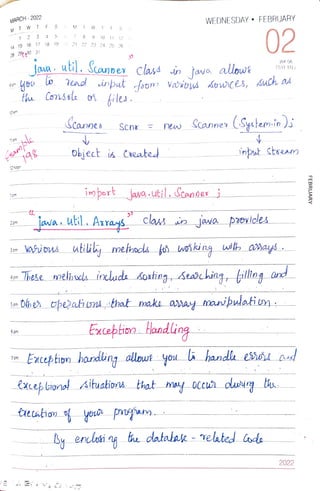 MARCH • 2022
WEDNESDAY • FEBRUARY
M T W T F S S M T W T F S S
1 2 3 4 5 6 7 8 9 10 11 12 13
14 15 16 17 18 19 20 21 22 23 24 25 26 27
28 29 30 31
02
"java. util. Scanner" class in java allows
you to read input from various sources, such as
the Console or files.
Scanner scnr = new Scanner (System.in);
Example
Object is Created
input stream
import java.util.Scanner ;
FEBRUARY
"java. util. Arrays" class in java provides
various utility methods for working with arrays.
These methods include sorting, searching, filling and
Other operations that make array manipulation.
Exception Handling
Exception handling allows you to handle errors and
exceptional situations that may occur during the
execution of your program.
By enclosing the database-related Code
2022